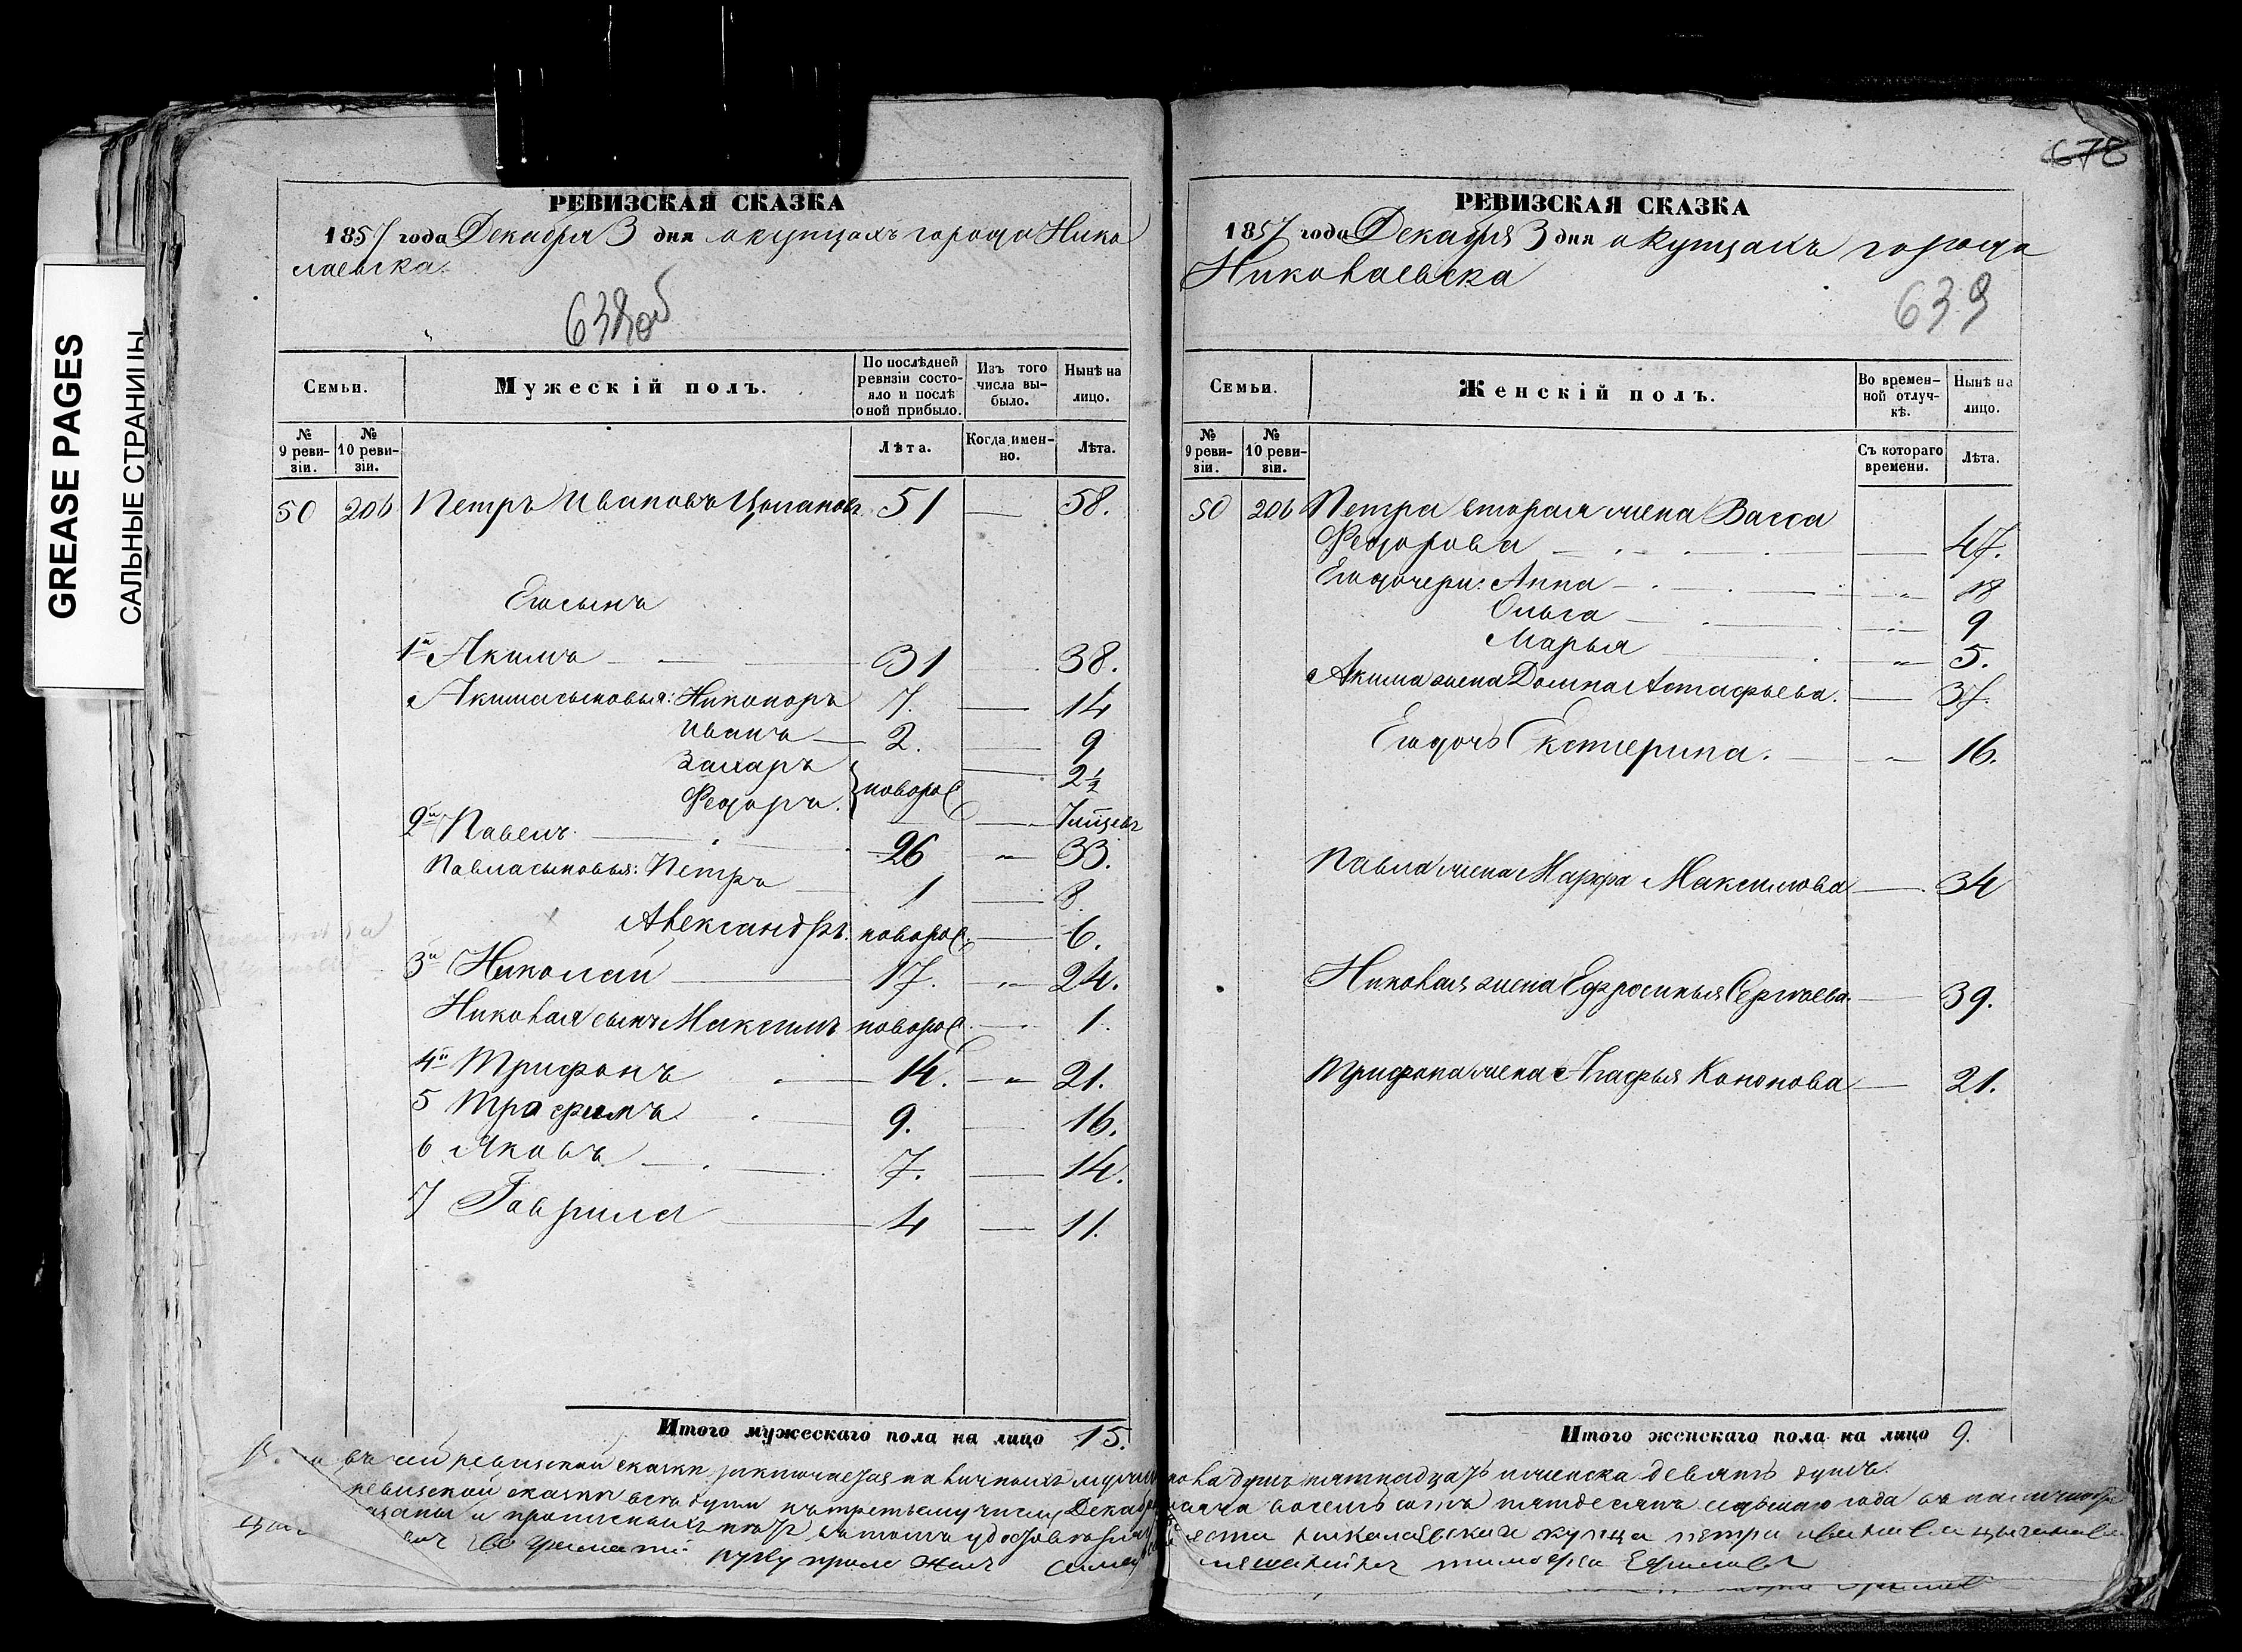 GREASE PAGES
САЛЬНЫЕ СТРАНИЦЫ
РЕВИЗСКАЯ СКАЗКА
1857 года Декабря 3 дня о купцахъ города Нико
лаевска.
638об
Семьи.
Мужескій полъ.
По послѣдней ревизіи состо-яло и послѣ оной прибыло.
Изъ того числа вы-было.
Нынѣ на лицо.
№ 9 реви-зіи.
№ 10 реви-зіи.
Лѣта.
Когда имен-но.
Лѣта.
50 206 Петръ Ивановъ Цыгановъ 51 — 58.
Его сынъ
1й Акимъ — 31 — 38.
Акима сыновья: Никоноръ 7. — 14
Иванъ — 2. — 9
Захаръ — 2½
Федоръ. } новорож — 7 мѣсяцевъ
2й Павелъ. — 26 " 33.
Павла сыновья: Петръ — 1 — 8.
Александръ. новорож. — 6.
3й Николай — 17. " 24.
Николая сынъ Максимъ новорож. — 1.
4й Трифонъ — 14. — " 21.
5 Трофимъ — 9. — 16.
6 Яковъ — 7. — 14.
7 Гаврила — 4 — 11.
Итого мужескаго пола на лицо 15.
678
РЕВИЗСКАЯ СКАЗКА
1857 года Декабря 3 дня о купцахъ города
Николаевска
639
Семьи.
Женскій полъ.
Во времен-ной отлуч-кѣ.
Нынѣ на лицо.
№ 9 реви-зіи.
№ 10 реви-зіи.
Съ котораго времени.
Лѣта.
50 206 Петра вторая жена Васса
Федорова — — 47.
Его дочери: Анна — " 18
Ольга — " 9
Марья — " 5.
Акима жена Домна Астафьева. — 37.
Его дочь Екатерина. — " 16.
Павла жена Марфа Максимова — 34
Николая жена Ефросинья Сергѣева — 39.
Трифона жена Агафья Кононова — 21.
Итого женскаго пола на лицо 9.
въ сей ревизской сказкѣ заключается наличныхъ душъ пятнадцать и женска девять душъ.
ревизской сказки всѣ души къ третьему числу Декабря восемь сотъ пятьдесятъ седьмаго года
и прописныхъ нѣтъ въ томъ удостовѣряю николаевскаго купца петра иванова цыганова
руку приложилъ тимофей Ефимовъ